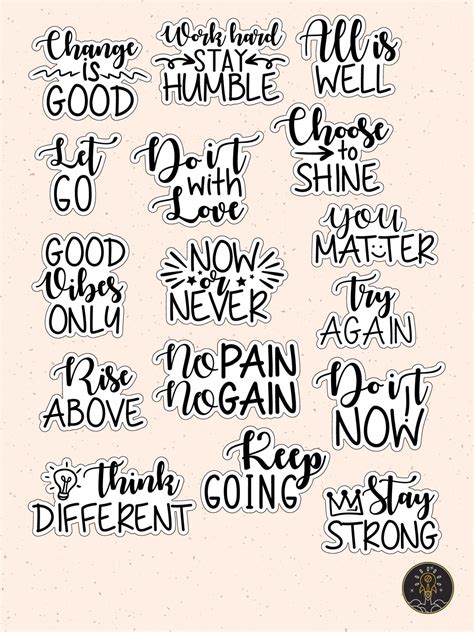 Change
is
GOOD
Work hard
STAY
HUMBLE
All is
WELL
Let
GO
Do it
with
Love
Choose
to
SHINE
GOOD
Vibes
ONLY
NOW
or
NEVER
you
MATTER
try
AGAIN
Rise
ABOVE
NO PAIN
NO GAIN
Do it
NOW
think
DIFFERENT
Keep
GOING
Stay
STRONG